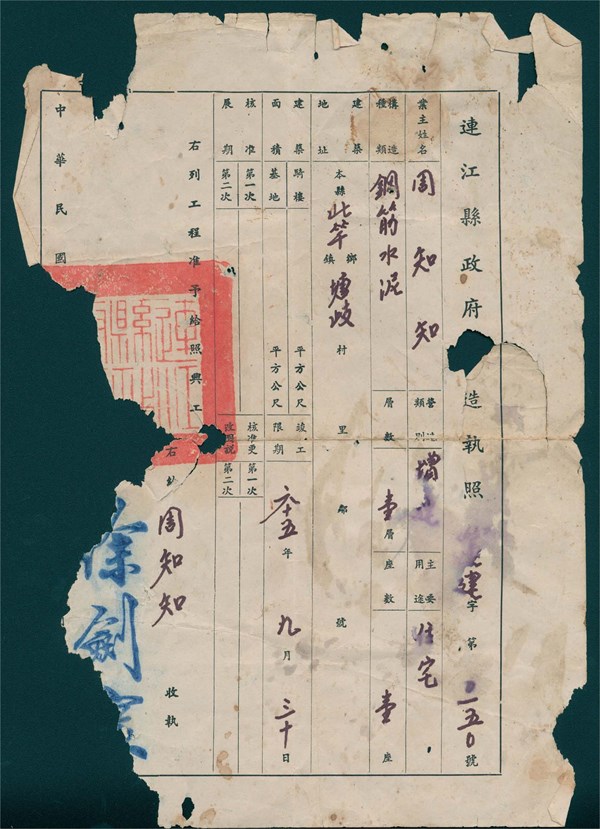 連江縣政府 造執照 建字第 一五〇號
業主姓名 周知知 營造類別 增建 主要用途 住宅
構造種類 鋼筋水泥 層數 壹層 座數 壹座
建築地址 本縣 北竿 鄉鎮 塘岐 村 里 鄰 號
建築面積 騎樓 平方公尺
基地 平方公尺
竣工限期 六十五年九月三十日
核准展期 第一次
第二次
核准變 第一次
第二次
右列工程准予給照興工
右 周知知 收執
中華民國